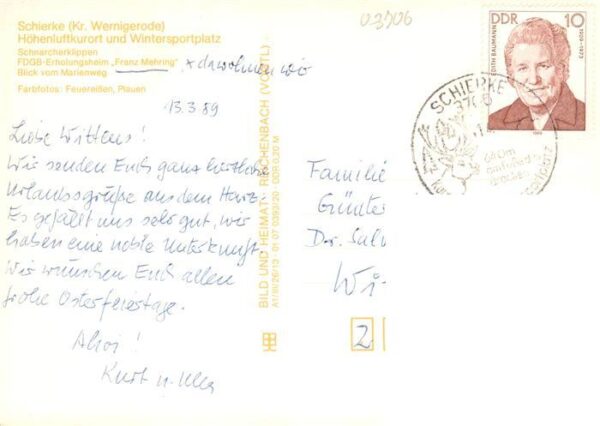 Schierke (Kr. Wernigerode)
Höhenluftkurort und Wintersportplatz
Schnarcherklippen
FDGB-Erholungsheim „Franz Mehring“ x da wohnen wir
Blick vom Marienweg
Farbfotos: Feuereißen, Plauen
13.3.89
Liebe Wittens!
Wir senden Euch ganz herzliche
Urlaubsgrüße aus dem Harz.
Es gefällt uns sehr gut, wir
haben eine noble Unterkunft.
Wir wünschen Euch allen
frohe Osterfeiertage.
Ahoi!
Kurt u. Ulla
BILD UND HEIMAT REICHENBACH (VOGTL)
A1/III/26/13 01 07 0393/20 DDR 0,20 M
03706
DDR 10
EDITH BAUMANN
1909-1973
1989
SCHIERKE
3706
640m
Brocken
Familie
Günter
Dr.
Wi-
2